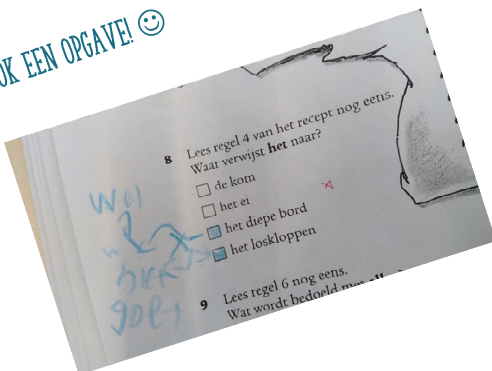 OK EEN OPGAVE!
8 Lees regel 4 van het recept nog eens.
Waar verwijst het naar?
de kom
het ei
het diepe bord
het loskloppen
9 Lees regel 6 nog eens.
Wat wordt bedoeld met